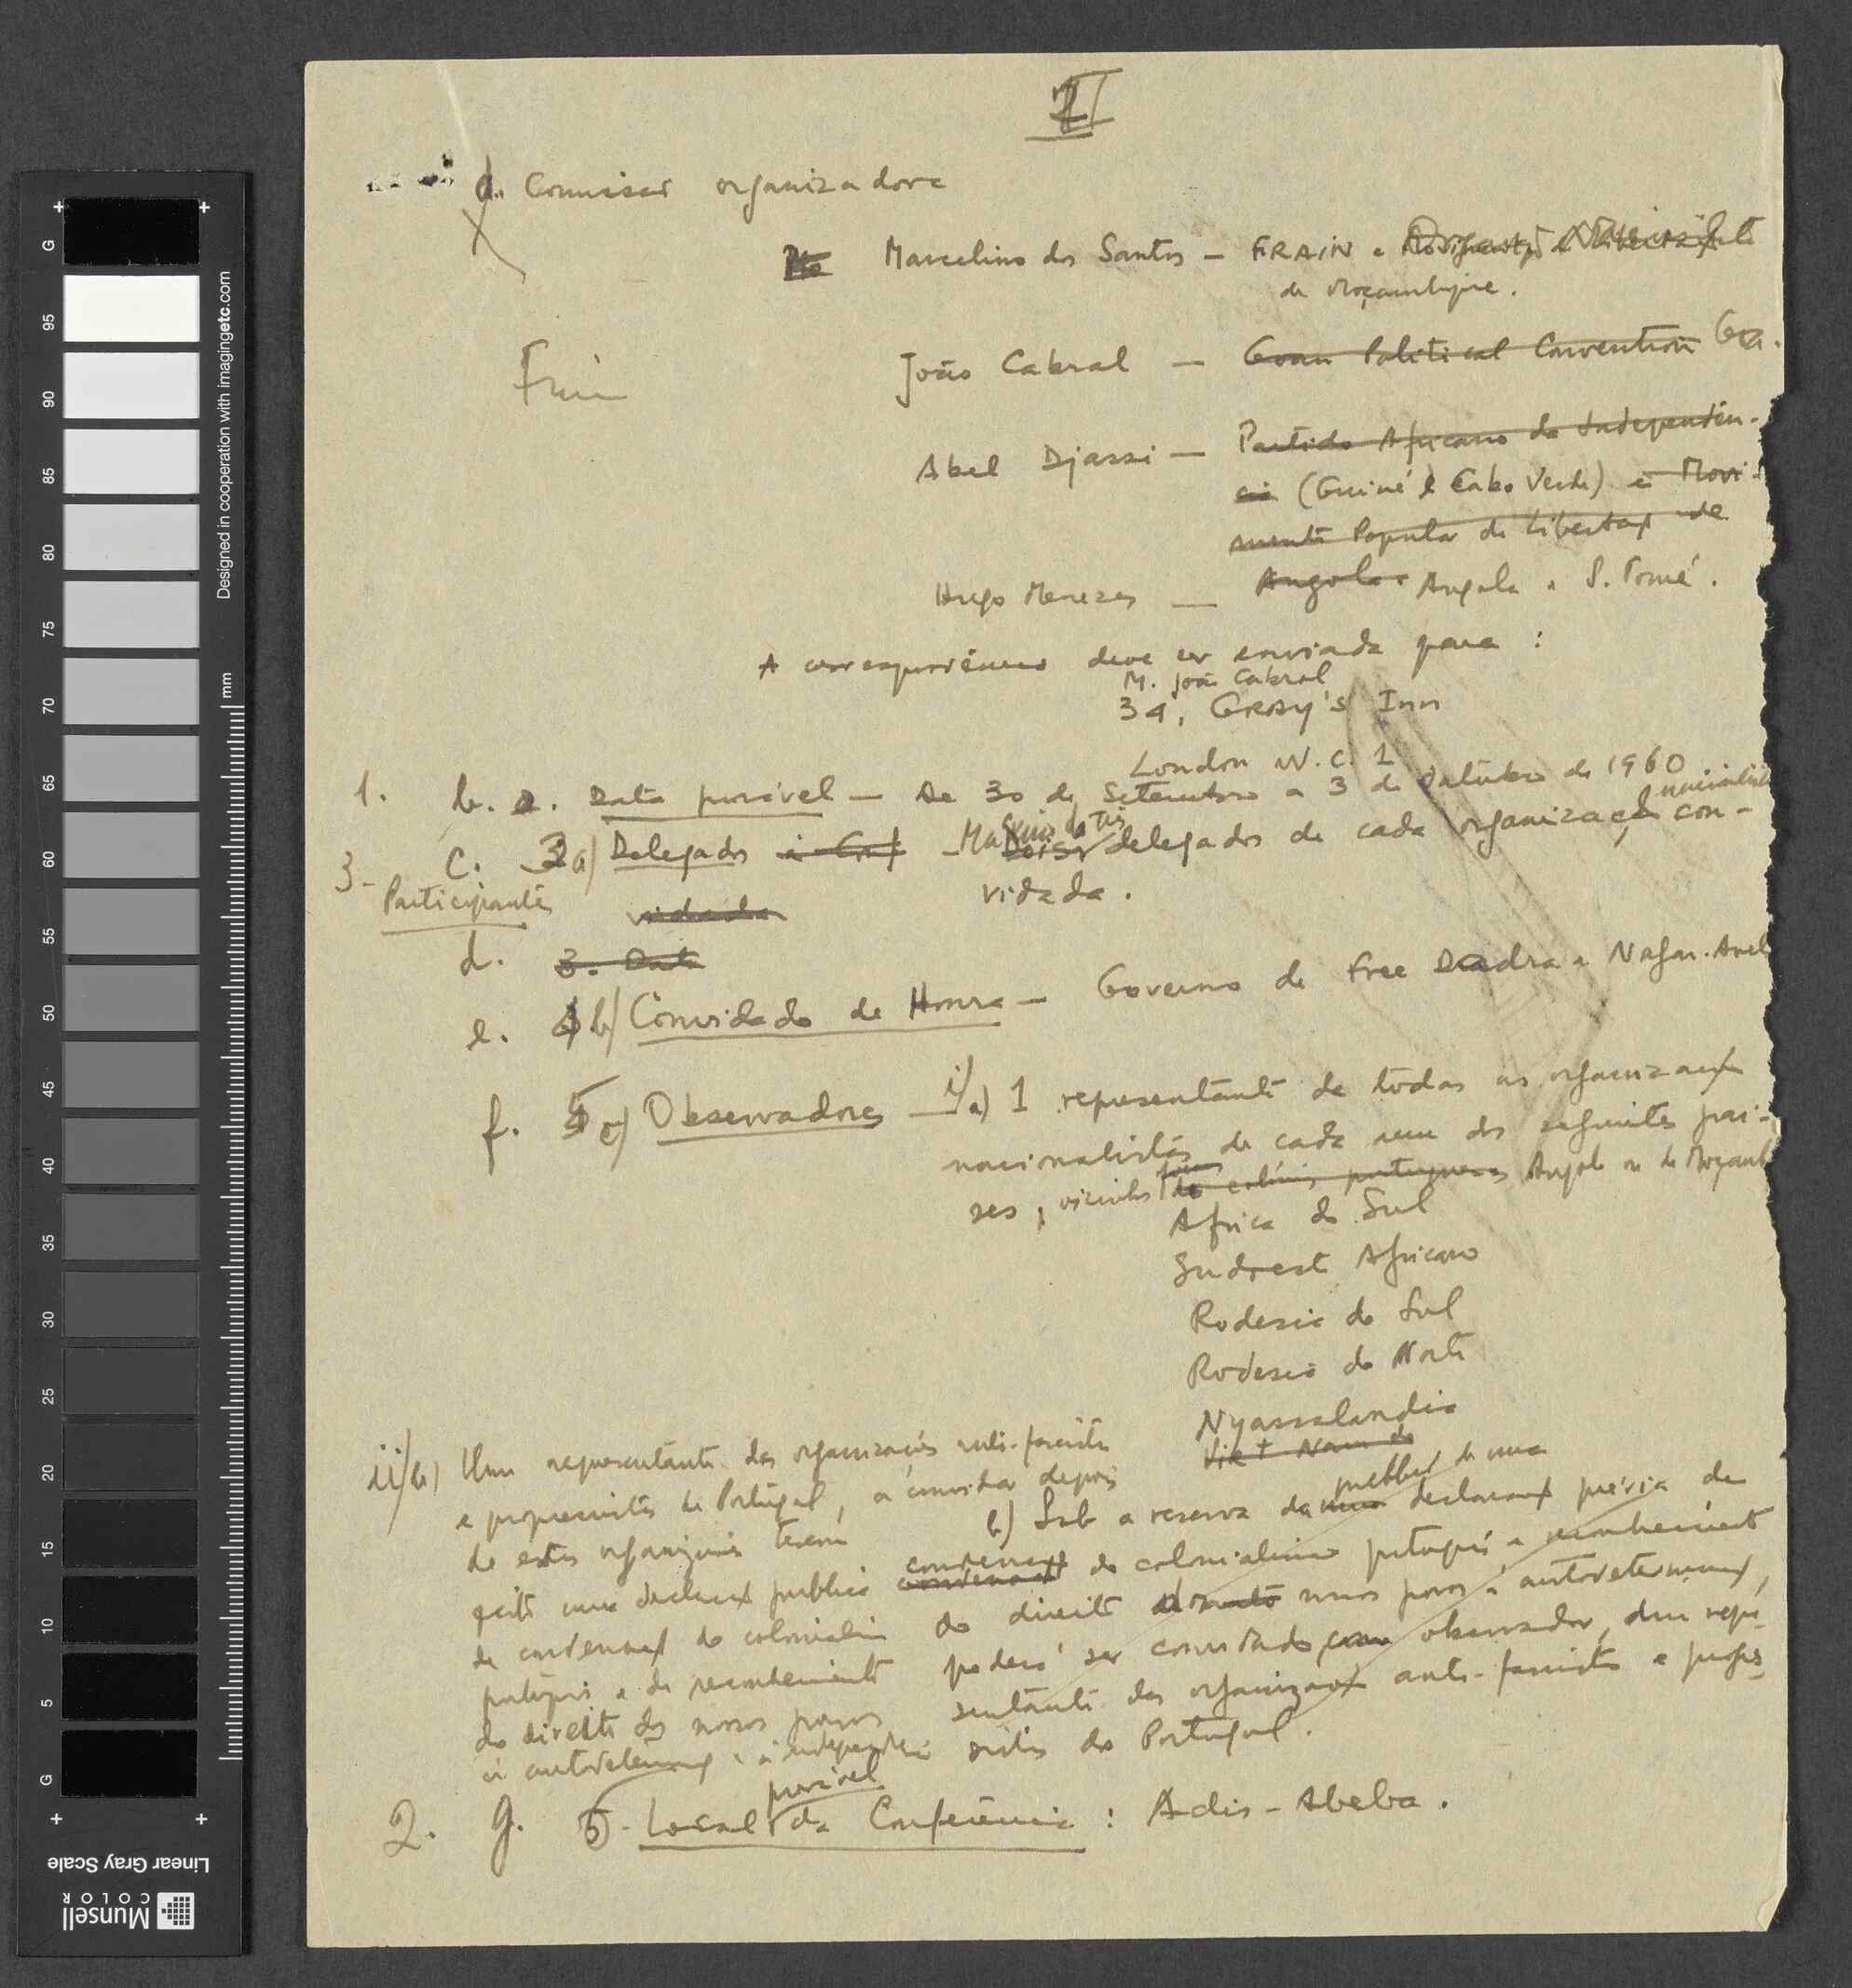 II
a. Comissão organizadora
Marcelino dos Santos — FRAIN e
de Moçambique.
João Cabral — Goan Political Convention Goa.
Abel Djassi — Partido Africano da Independên-
cia (Guiné e Cabo Verde) e Movi-
mento Popular de Libertação de
Angola
Hugo Menezes — Angola e S. Tomé.
A correspondência deve ser enviada para :
M. João Cabral
34, GRAY'S Inn
London W.C. 1
1. b. 2. Data possível — De 30 de Setembro a 3 de Outubro de 1960
3- c. 3 a) Delegados à Conf — Máximo de três delegados de cada organização nacionalista con-
Participantes vidada.
vidada
d. 3. Data
e. 4 b) Convidado de Honra — Governo de Free Dadra e Nagar-Aveli
f. 5 c) Observadores — i/a) 1 representante de todas as organizações
nacionalistas de cada um dos seguintes paí-
ses, vizinhos das colónias portuguesas Angola ou de Moçamb
Africa do Sul
Sudoeste Africano
Rodesia do Sul
Rodesia do Norte
Nyassalandia
ii/b) Um representante das organizações anti-fascistas
e progressistas de Portugal, a convidar depois
de estas organizações terem
feito uma declaração publica
de condenação do colonialismo
português e de reconhecimento
do direito dos nossos povos
à autodeterminação e à independência
b) Sob a reserva de uma declaração prévia de
condenação do colonialismo português e reconhecimento
do direito nossos povos à autodeterminação,
poderá ser convidado como observador, um repre-
sentante das organizações anti-fascistas e progres-
sistas de Portugal.
2. g. 5- Local possível da Conferência : Adis-Abeba.
Designed in cooperation with imagingetc.com
mm
G 95 90 85 80 75 70 65 60 55 50 45 40 35 30 25 20 15 10 5 G
Linear Gray Scale
Munsell
COLOR